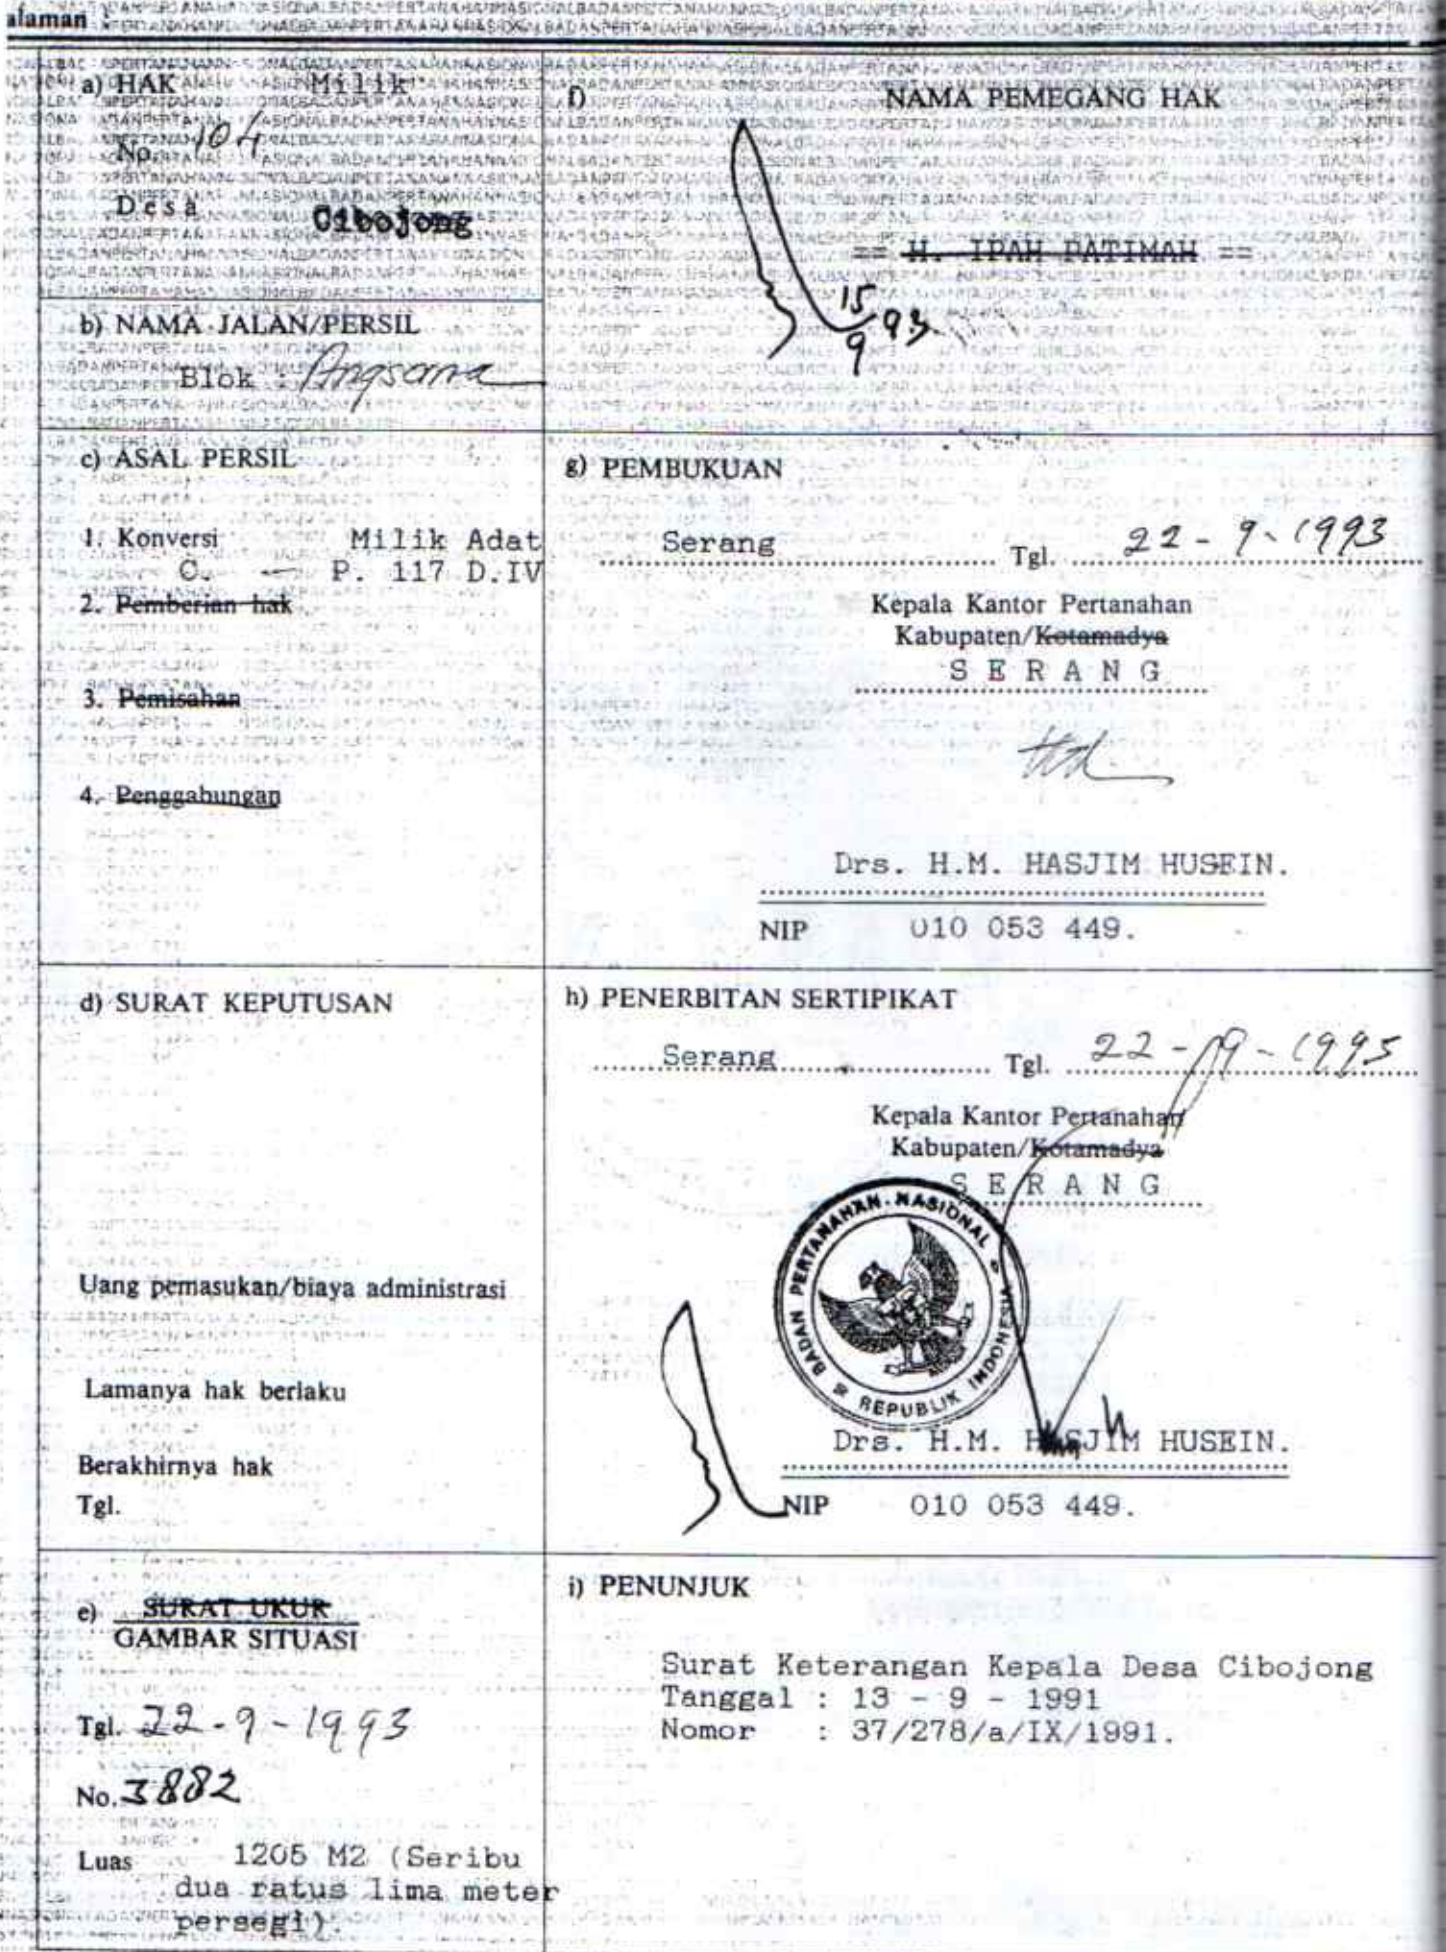 alaman :
a) HAK Milik
No. 104
Desa Cibojong
b) NAMA JALAN/PERSIL
Blok : Angsana
c) ASAL PERSIL
1. Konversi Milik Adat
C. — P. 117 D.IV
2. Pemberian hak
3. Pemisahan
4. Penggabungan
d) SURAT KEPUTUSAN
Uang pemasukan/biaya administrasi
Lamanya hak berlaku
Berakhirnya hak
Tgl.
e) SURAT UKUR
GAMBAR SITUASI
Tgl. 22-9-1993
No. 3882
Luas 1205 M2 (Seribu
dua ratus lima meter
persegi)
f) NAMA PEMEGANG HAK
== H. IPAH PATIMAH ==
15/9 93
g) PEMBUKUAN
Serang Tgl. 22-9-1993
Kepala Kantor Pertanahan
Kabupaten/Kotamadya
S E R A N G
Drs. H.M. HASJIM HUSEIN.
NIP 010 053 449.
h) PENERBITAN SERTIPIKAT
Serang Tgl. 22-9-1993
Kepala Kantor Pertanahan
Kabupaten/Kotamadya
S E R A N G
BADAN PERTANAHAN NASIONAL
REPUBLIK INDONESIA
Drs. H.M. HASJIM HUSEIN.
NIP 010 053 449.
i) PENUNJUK
Surat Keterangan Kepala Desa Cibojong
Tanggal : 13 - 9 - 1991
Nomor : 37/278/a/IX/1991.